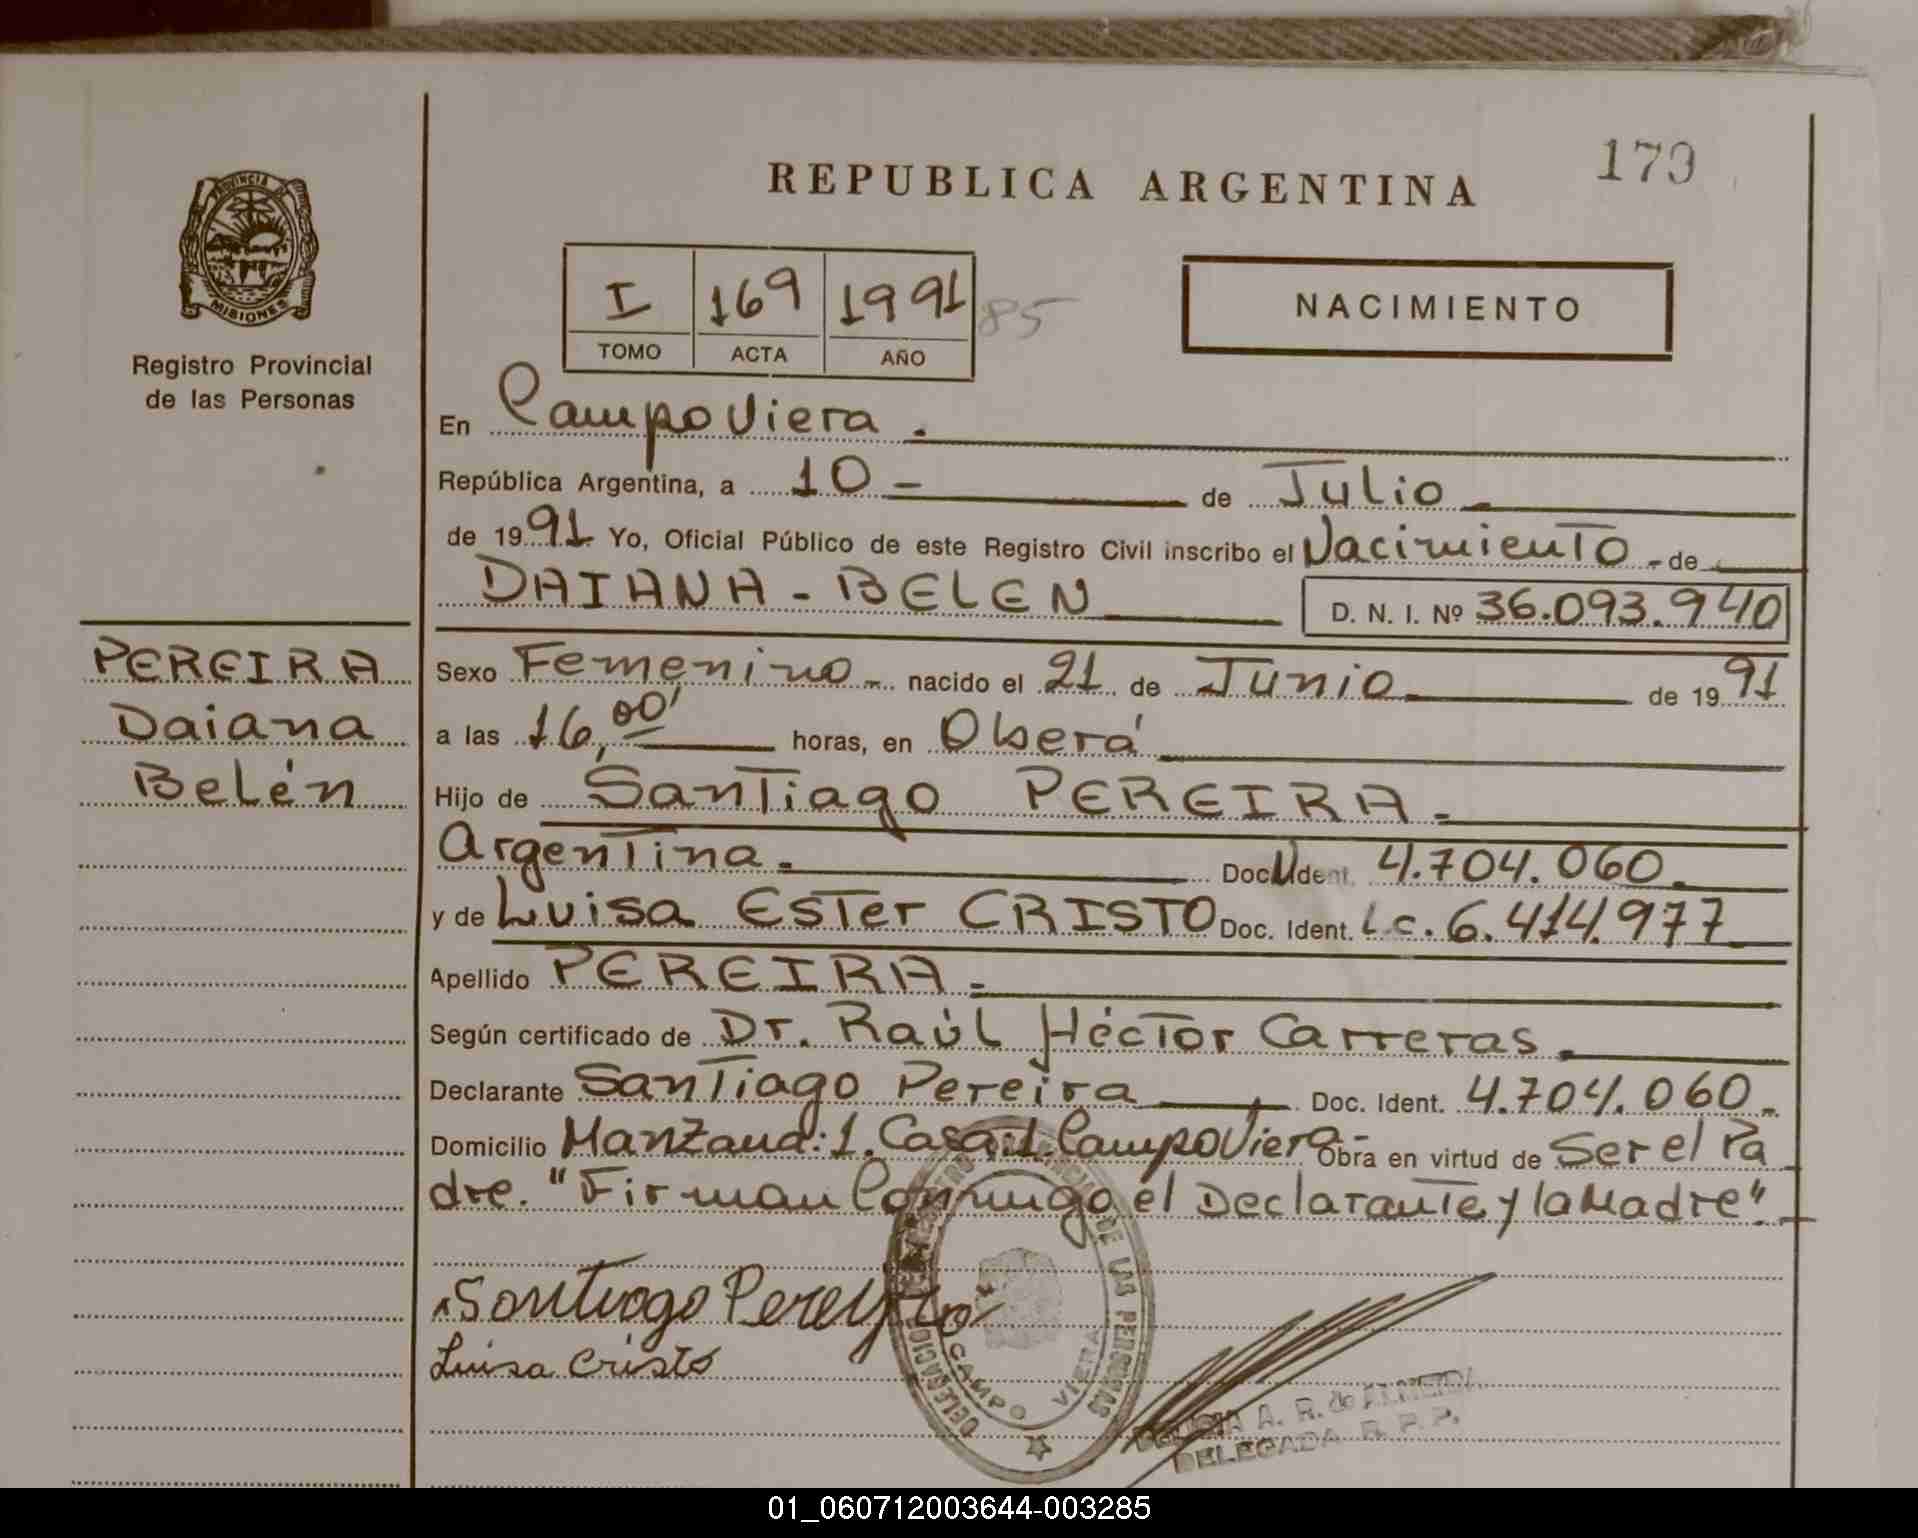 173
REPUBLICA ARGENTINA
PROVINCIA DE
MISIONES
Registro Provincial
de las Personas
I 169 1991 85
TOMO ACTA AÑO
NACIMIENTO
En Campo Viera.
República Argentina, a 10 - de Julio
de 1991 Yo, Oficial Público de este Registro Civil inscribo el Nacimiento - de
DAIANA - BELEN D. N. I. Nº 36.093.940
PEREIRA
Daiana
Belén
Sexo Femenino nacido el 21 de Junio de 1991
a las 16,00' horas, en Oberá
Hijo de Santiago PEREIRA.
Argentina. Doc. Ident. 4.704.060.
y de Luisa Ester CRISTO Doc. Ident. L.c. 6.414.977
Apellido PEREIRA.
Según certificado de Dr. Raúl Héctor Carreras.
Declarante Santiago Pereira Doc. Ident. 4.704.060.
Domicilio Manzana:1. Casa:1. Campo Viera - Obra en virtud de Ser el Pa
dre. "Firman Conmigo el Declarante y la Madre"
Santiago Pereyra
Luisa Cristo
DELEGACION REGISTRO PROVINCIAL DE LAS PERSONAS
CAMPO VIERA
A. R. de ALMEIDA
DELEGADA R. P. P.
01_060712003644-003285